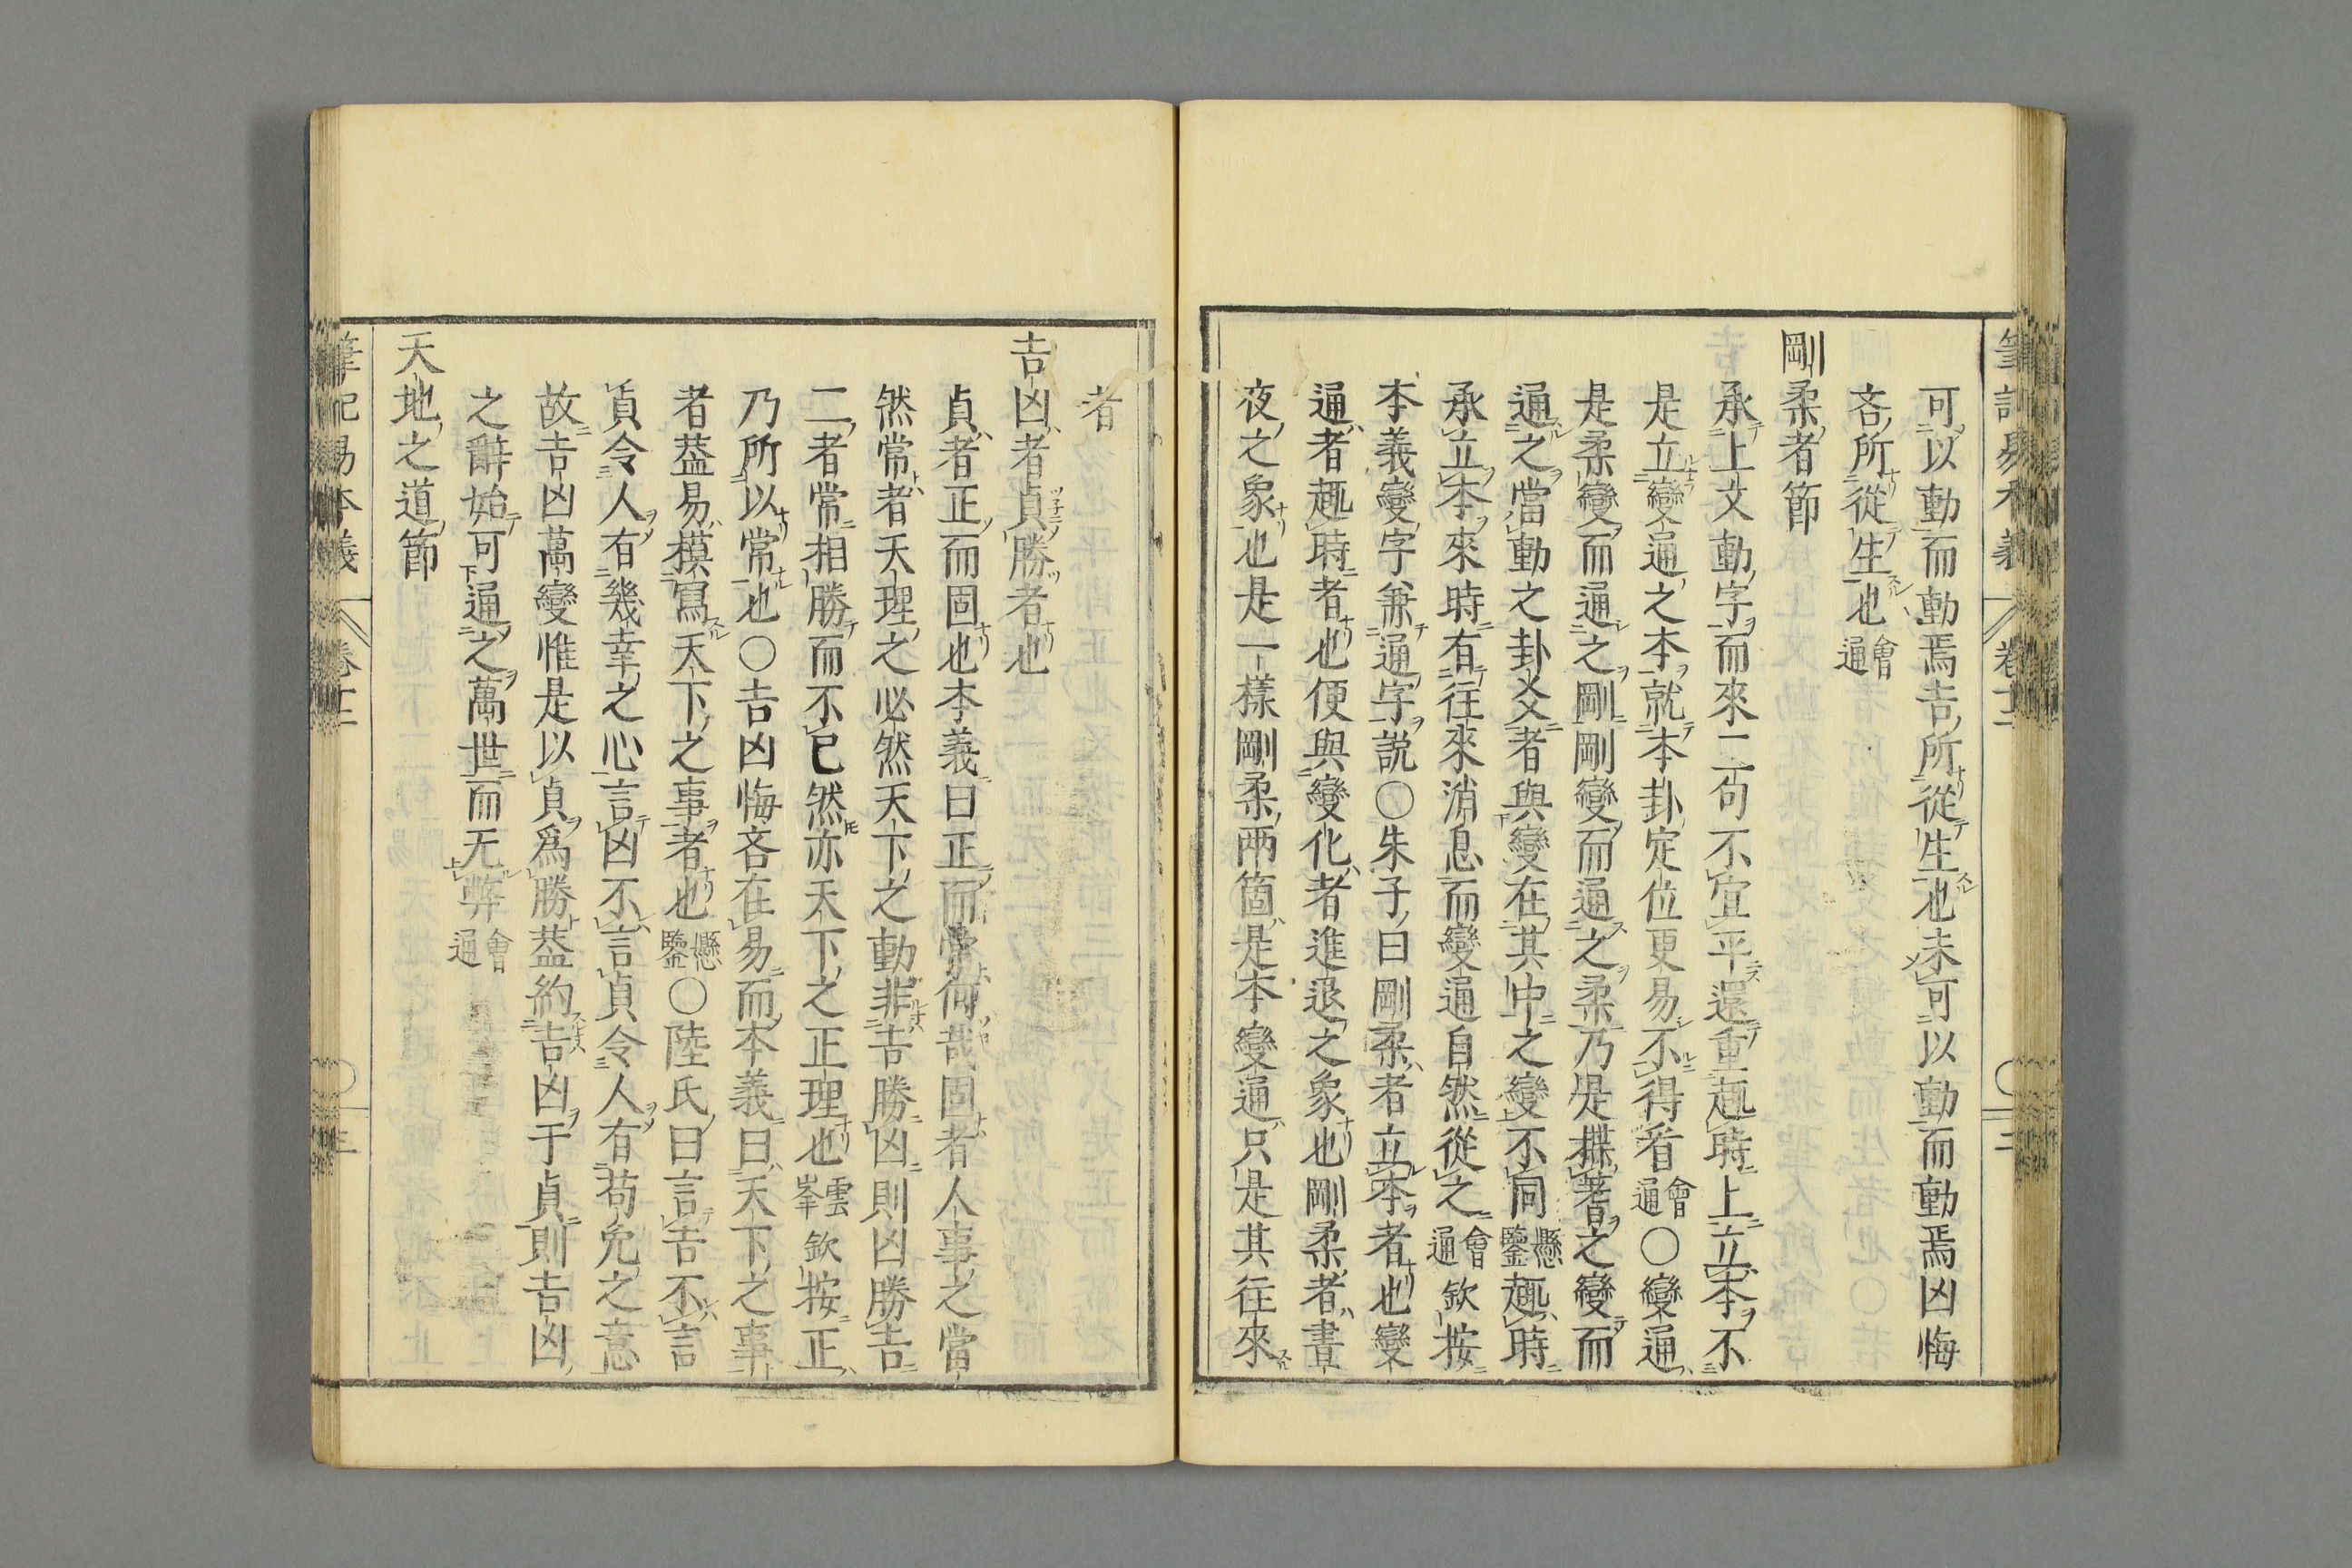 可以動而動焉吉所從生也未可以動而動焉凶悔
吝所從生也會通
剛柔者節
承上文動字而來二句不宜平還重趣時上立本不
是立變通之本就本卦定位更易不得看會通○變通
是柔變而通之剛剛變而通之柔乃是揲蓍之變而
通之當動之卦爻者與變在其中之變不同懸鑒趣時
承立本來時有往來消息而變通自然從之會通欽按
本義變字兼通字說○朱子曰剛柔者立本者也變
通者趣時者也便與變化者進退之象也剛柔者晝
夜之象也是一樣剛柔兩箇是本變通只是其往來
者
吉凶者貞勝者也
貞者正而固也本義曰正而常何哉固者人事之當
然常者天理之必然天下之動非吉勝凶則凶勝吉
二者常相勝而不已然亦天下之正理也雲峯欽按正
乃所以常也○吉凶悔吝在易而本義曰天下之事
者葢易模寫天下之事者也懸鑒○陸氏曰言吉不言
貞令人有幾幸之心言凶不言貞令人有苟免之意
故吉凶萬變惟是以貞爲勝葢約吉凶于貞則吉凶
之辭始可通之萬世而无弊會通
天地之道節
筆記易本義 卷十二